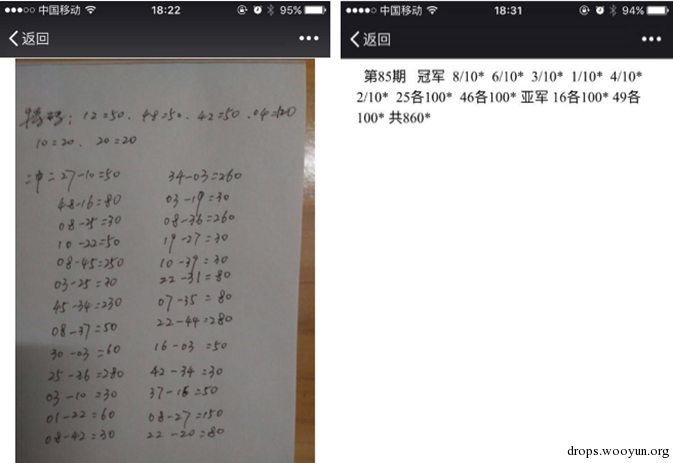 中国移动 18:22 95%
返回
特码: 12=50、48=50、42=50、04=120
10=20、20=20
二中二27-10=50 34-03=260
48-16=80 03-19=30
08-25=30 08-36=260
10-22=50 19-27=30
08-45=250 10-39=30
03-25=30 22-31=80
45-34=230 07-35=80
08-37=50 22-44=280
30-03=60 16-03=50
25-36=280 42-34=30
03-10=30 37-16=50
01-22=60 08-27=150
08-42=30 22-20=80
中国移动 18:31 94%
返回
第85期 冠军 8/10* 6/10* 3/10* 1/10* 4/10*
2/10* 25各100* 46各100* 亚军 16各100* 49各
100* 共860*
drops.wooyun.org